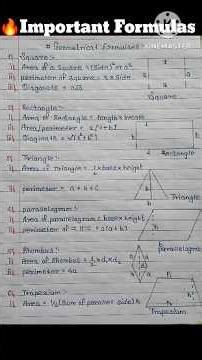 Important Formulas
# Geometrical Formulas
KINEMASTER
1) Square:-
i) Area of a Square = (Side)² or a²
ii) perimeter of Square = 4 x side
iii) Diagonals = a√2
a
Square
2) Rectangle
i) Area of Rectangle = length x breadth
ii) Area/perimeter = 2(l+b)
iii) Diagonals = √l²+b²
Rectangle
3) Triangle:-
i) Area of Triangle = ½ base x height
ii) perimeter = a+b+c
Triangle
4) parallelogram:-
i) Area of parallelogram = base x height
ii) perimeter of = 2(a+b)
parallelogram
5) Rhombus:-
i) Area of Rhombus = ½ d₁ x d₂
ii) perimeter = 4a
6) Trapezium:-
i) Area = ½ (Sum of parallel side) h
Trapezium